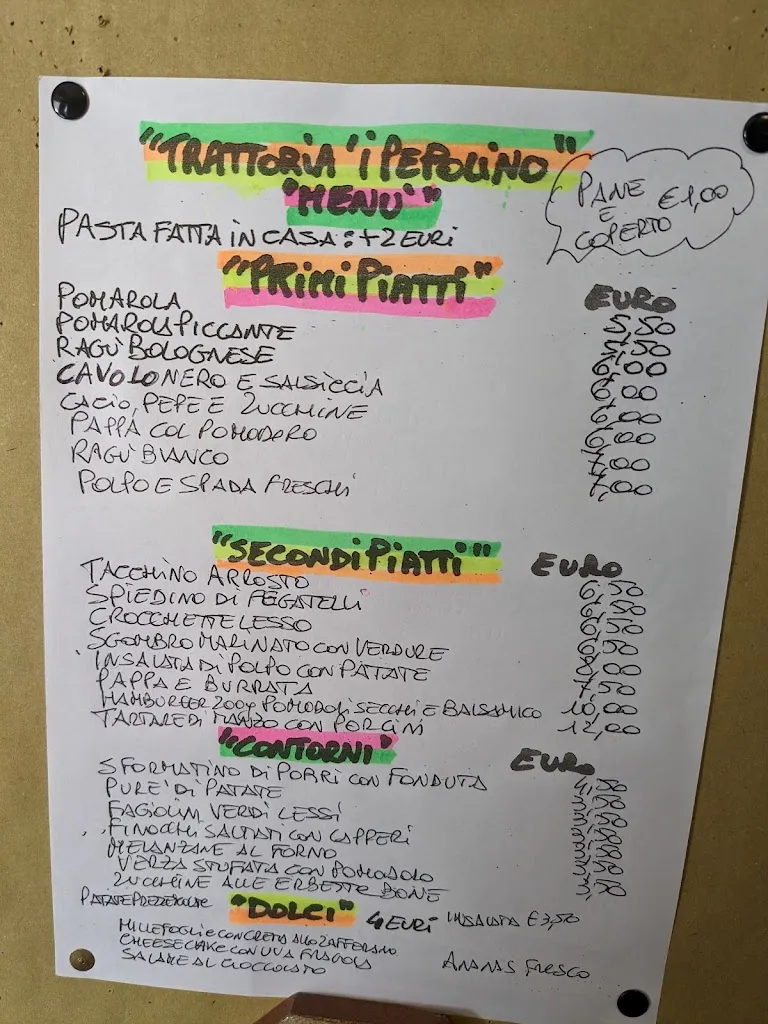 "TRATTORIA 'I PEPOLINO"
"MENÙ"
PANE E COPERTO €1,00
PASTA FATTA IN CASA: +2 EURI
"PRIMI PIATTI"
EURO
POMAROLA 5,50
POMAROLA PICCANTE 5,50
RAGÙ BOLOGNESE 6,00
CAVOLO NERO E SALSICCIA 6,00
CACIO, PEPE E ZUCCHINE 6,00
PAPPA COL POMODORO 6,00
RAGÙ BIANCO 7,00
POLPO E SPADA FRESCHI 7,00
"SECONDI PIATTI" EURO
TACCHINO ARROSTO 6,50
SPIEDINO DI FEGATELLI 6,50
CROCCHETTE LESSO 6,50
SGOMBRO MARINATO CON VERDURE 6,50
INSALATA DI POLPO CON PATATE 8,00
PAPPA E BURRATA 7,50
HAMBURGER 200g POMODORI SECCHI E BALSAMICO 10,00
TARTARE DI MANZO CON PORCINI 12,00
"CONTORNI" EURO
SFORMATINO DI PORRI CON FONDUTA 4,50
PURE' DI PATATE
FAGIOLINI VERDI LESSI
FINOCCHI SALTATI CON CAPPERI
MELANZANE AL FORNO
VERZA STUFATA CON POMODORO
ZUCCHINE ALLE ERBETTE BONE
PATATE INSALATA €3,50
"DOLCI" 4 EURI
MILLEFOGLIE CON CREMA ALLO ZAFFERANO
CHEESECAKE CON UVA FRAGOLA
SALAME AL CIOCCOLATO
ANANAS FRESCO